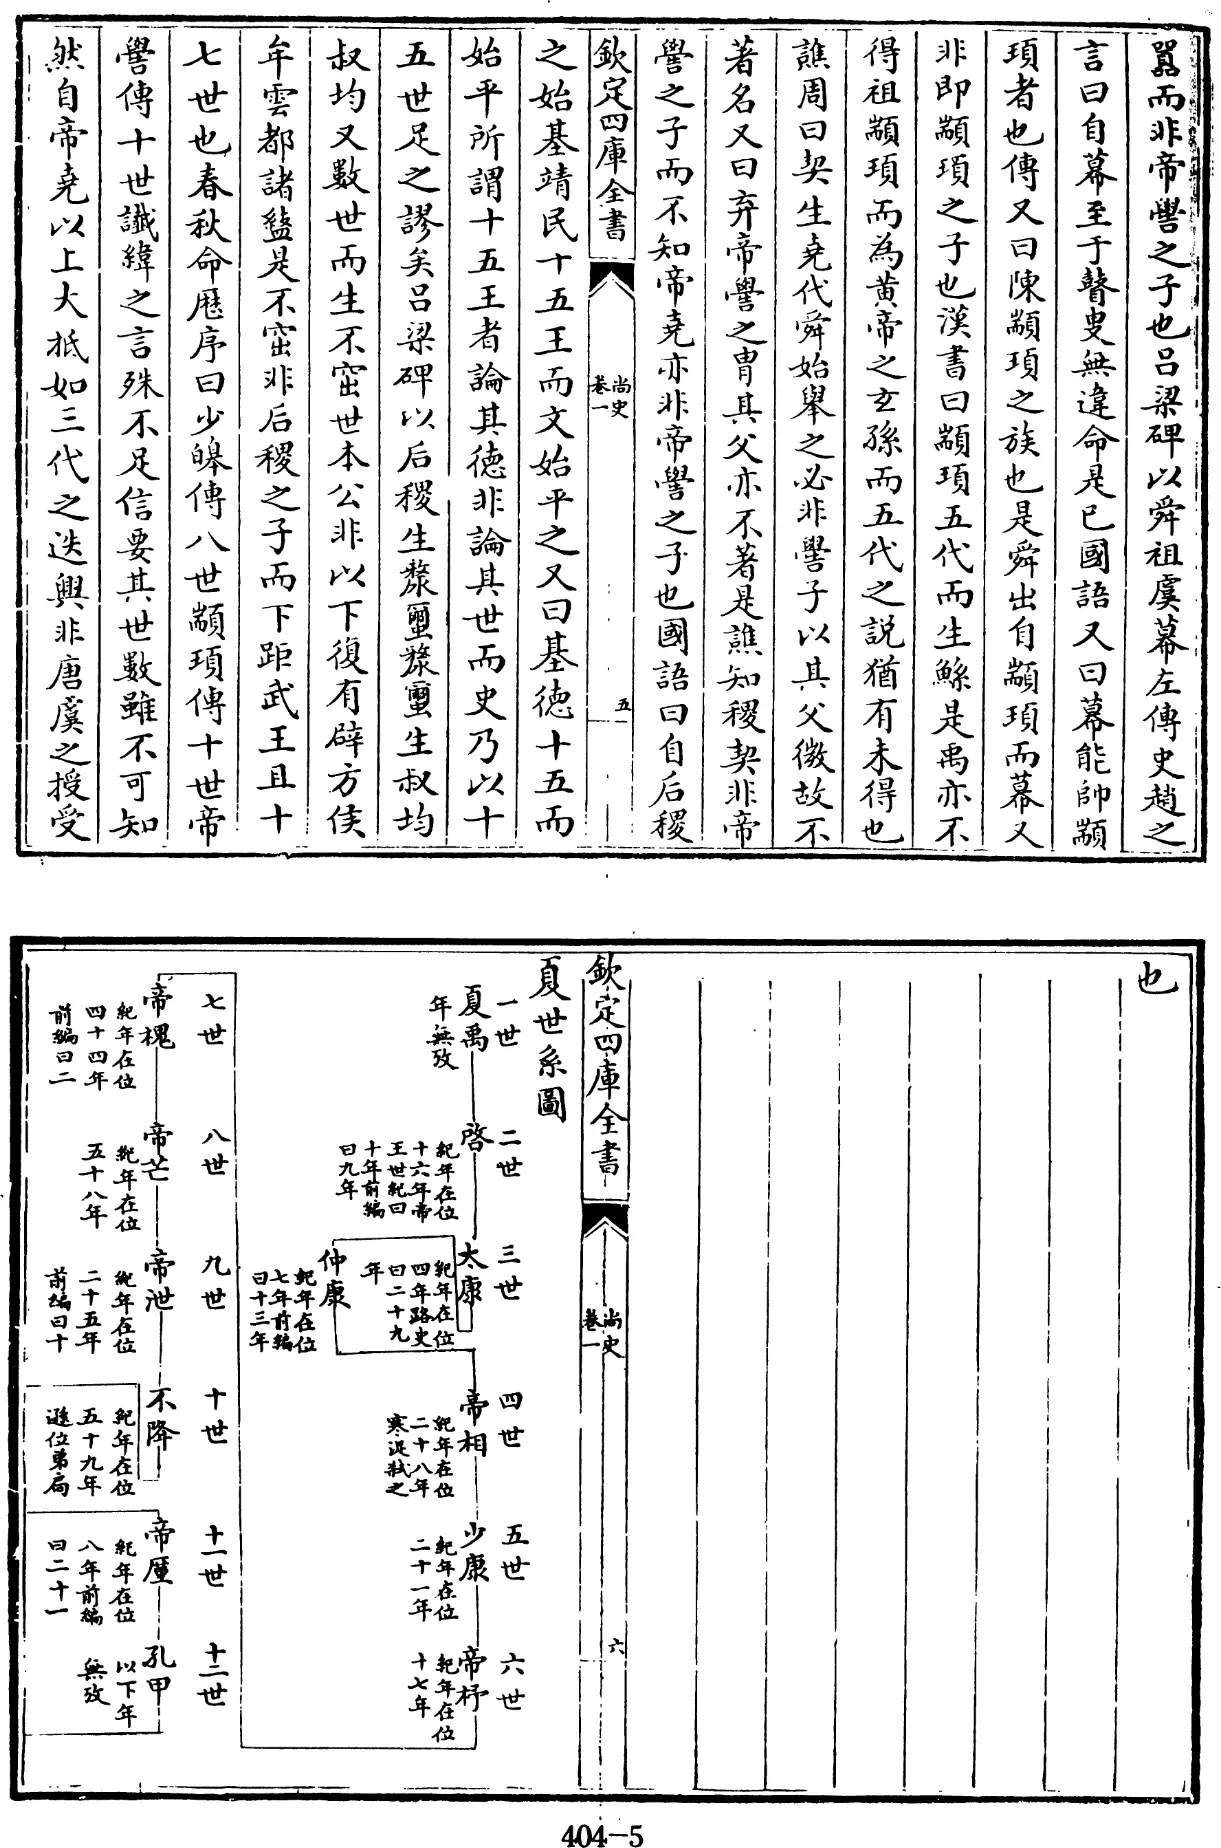 嚚而非帝嚳之子也吕梁碑以舜祖虞幕左傳史趙之
言曰自幕至于瞽叟無違命是已國語又曰幕能帥顓
頊者也傳又曰陳顓頊之族也是舜出自顓頊而幕又
非即顓頊之子也漢書曰顓頊五代而生鯀是禹亦不
得祖顓頊而為黄帝之玄孫而五代之説猶有未得也
譙周曰契生堯代舜始舉之必非嚳子以其父微故不
著名又曰弃帝嚳之胄其父亦不著是譙知稷契非帝
嚳之子而不知帝堯亦非帝嚳之子也國語曰自后稷
欽定四庫全書
尚史
卷一
五
之始基靖民十五王而文始平之又曰基德十五而
始平所謂十五王者論其德非論其世而史乃以十
五世足之謬矣吕梁碑以后稷生漦璽漦璽生叔均
叔均又數世而生不窋世本公非以下復有辟方侯
牟雲都諸盩是不窋非后稷之子而下距武王且十
七世也春秋命歴序曰少皞傳八世顓頊傳十世帝
嚳傳十世讖緯之言殊不足信要其世數雖不可知
然自帝堯以上大抵如三代之迭興非唐虞之授受
也
欽定四庫全書
尚史
卷一
六
夏世系圖
一世
夏禹
年無攷
二世
啓
紀年在位
十六年帝
王世紀曰
十年前編
曰九年
三世
太康
紀年在位
四年路史
曰二十九
年
仲康
紀年在位
七年前編
曰十三年
四世
帝相
紀年在位
二十八年
寒浞弑之
五世
少康
紀年在位
二十一年
六世
帝杼
紀年在位
十七年
七世
帝槐
紀年在位
四十四年
前編曰二
八世
帝芒
紀年在位
五十八年
九世
帝泄
紀年在位
二十五年
前編曰十
十世
不降
紀年在位
五十九年
遜位弟扃
十一世
帝廑
紀年在位
八年前編
曰二十一
十二世
孔甲
以下年
無攷
404-5